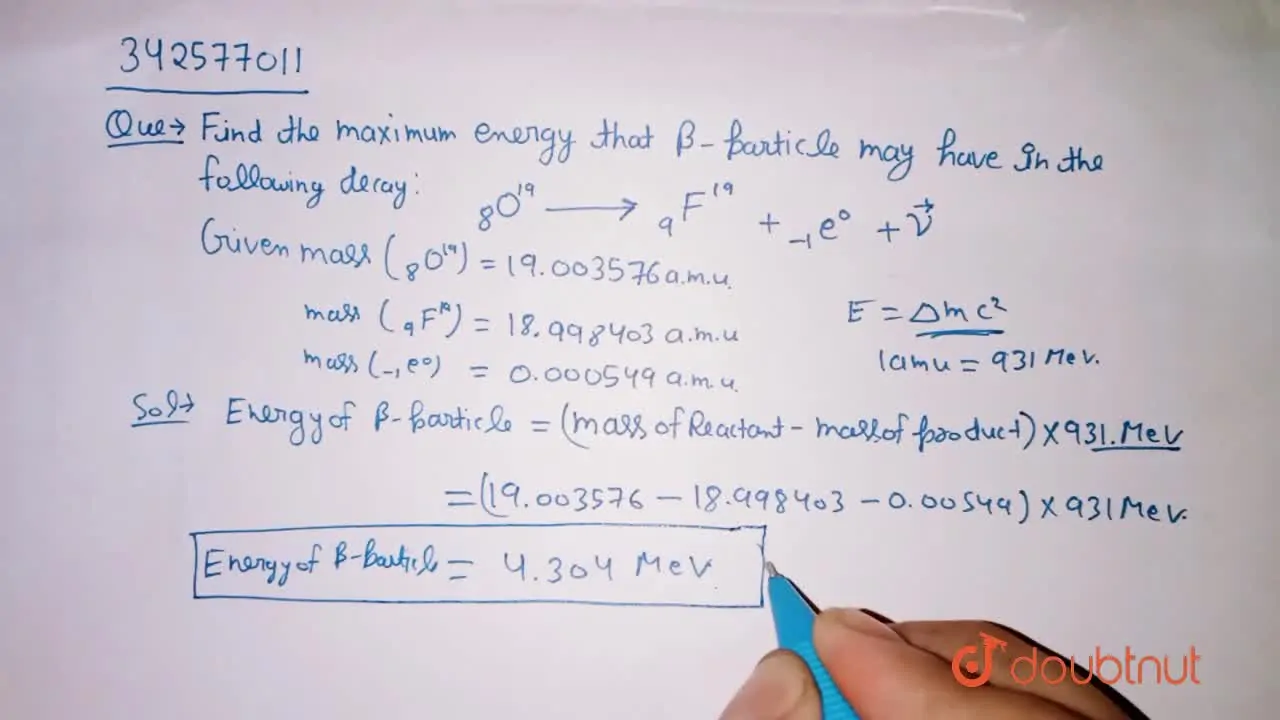 342577011
Que→ Find the maximum energy that β-particle may have in the
following decay:
₈O¹⁹ ⟶ ₉F¹⁹ + ₋₁e⁰ + ν⃗
Given mass (₈O¹⁹) = 19.003576 a.m.u.
mass (₉F¹⁹) = 18.998403 a.m.u
E = Δmc²
mass (₋₁e⁰) = 0.000549 a.m.u.
1amu = 931 MeV.
Sol→ Energy of β-particle = (mass of Reactant - mass of product) × 931. MeV
= (19.003576 - 18.998403 - 0.00549) × 931 MeV.
Energy of β-particle = 4.304 MeV
doubtnut